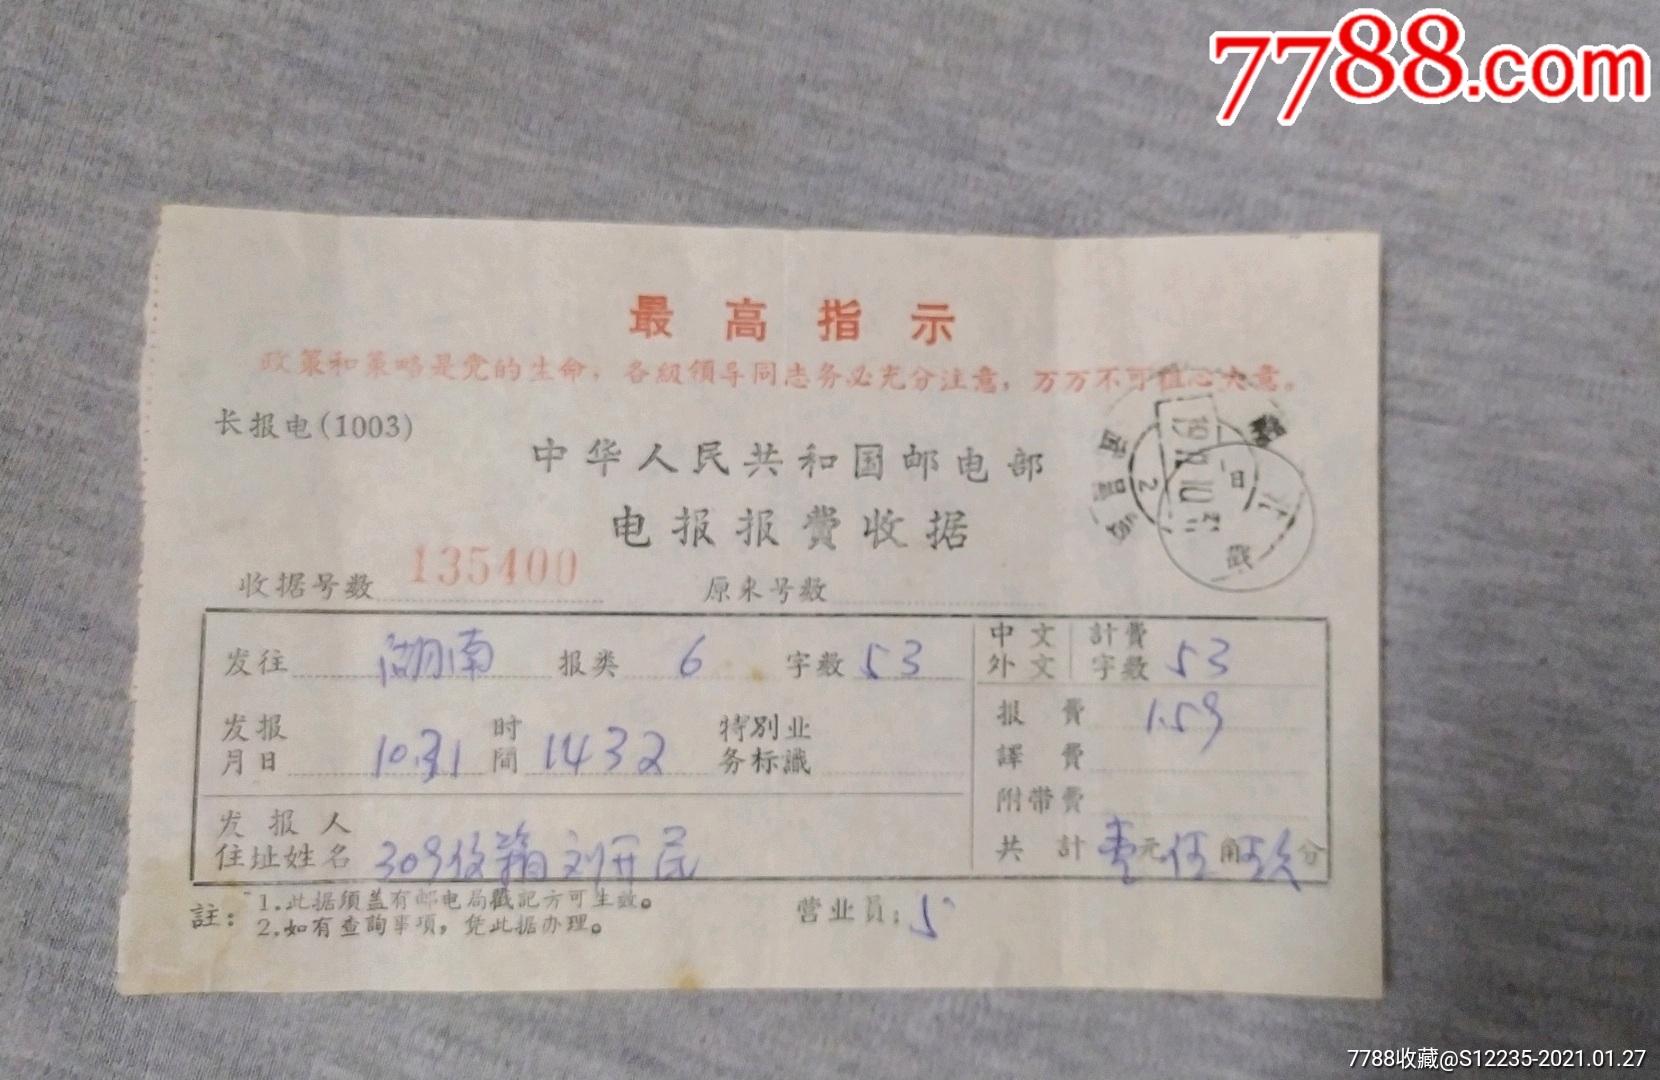 7788.com
最高指示
政策和策略是党的生命，各級領导同志务必充分注意，万万不可粗心大意。
长报电(1003)
中华人民共和国邮电部
电报报費收据
收据号数 135400 原来号数
发往 湖南 报类 6 字数 53
中文 外文 計費字数 53
发报月日 10.31 时間 1432 特別业务标識
报費 1.59
譯費
附带費
发报人住址姓名 309 刘开民
共計 壹元伍角玖分
註：1.此据须盖有邮电局戳記方可生效。
2.如有查詢事項，凭此据办理。
营业员：
7788收藏@S12235-2021.01.27